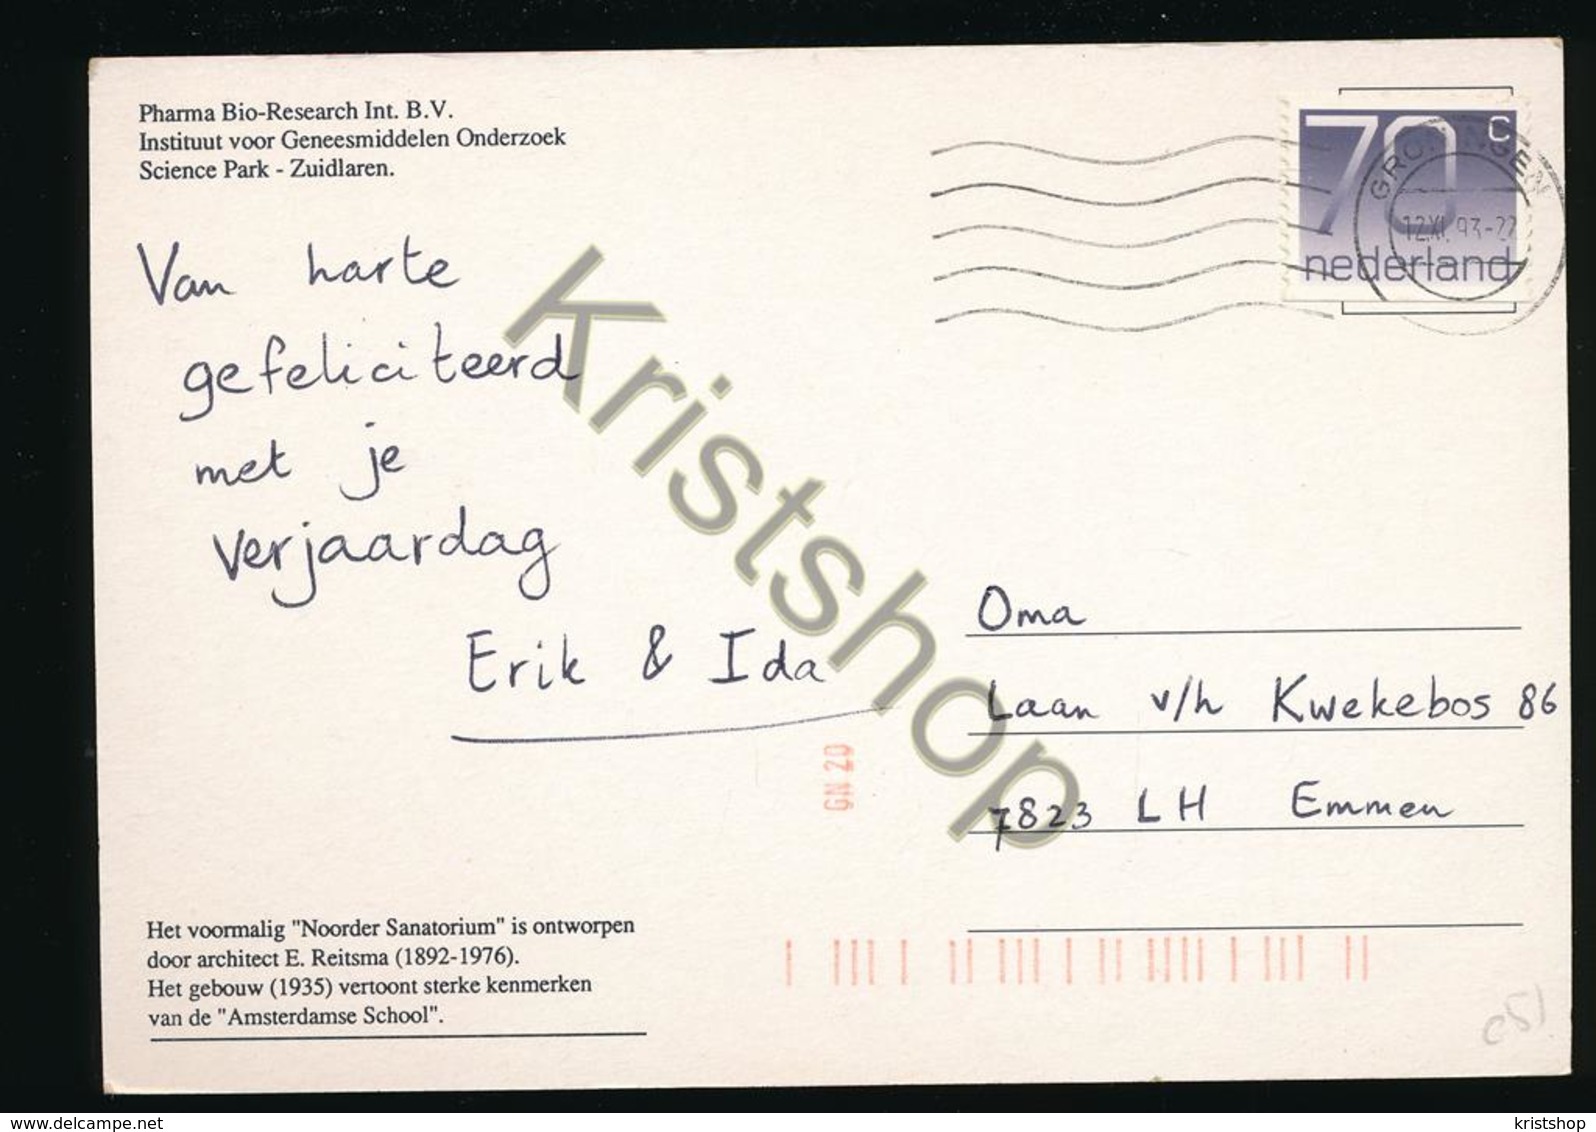 Pharma Bio-Research Int. B.V.
Instituut voor Geneesmiddelen Onderzoek
Science Park - Zuidlaren.
70 c
nederland
GRONINGEN
12.XI.93-22
Van harte
gefeliciteerd
met je
verjaardag
Erik & Ida
Kristshop
Oma
Laan v/h Kwekebos 86
7823 LH Emmen
GN 20
Het voormalig "Noorder Sanatorium" is ontworpen
door architect E. Reitsma (1892-1976).
Het gebouw (1935) vertoont sterke kenmerken
van de "Amsterdamse School".
www.delcampe.net
kristshop